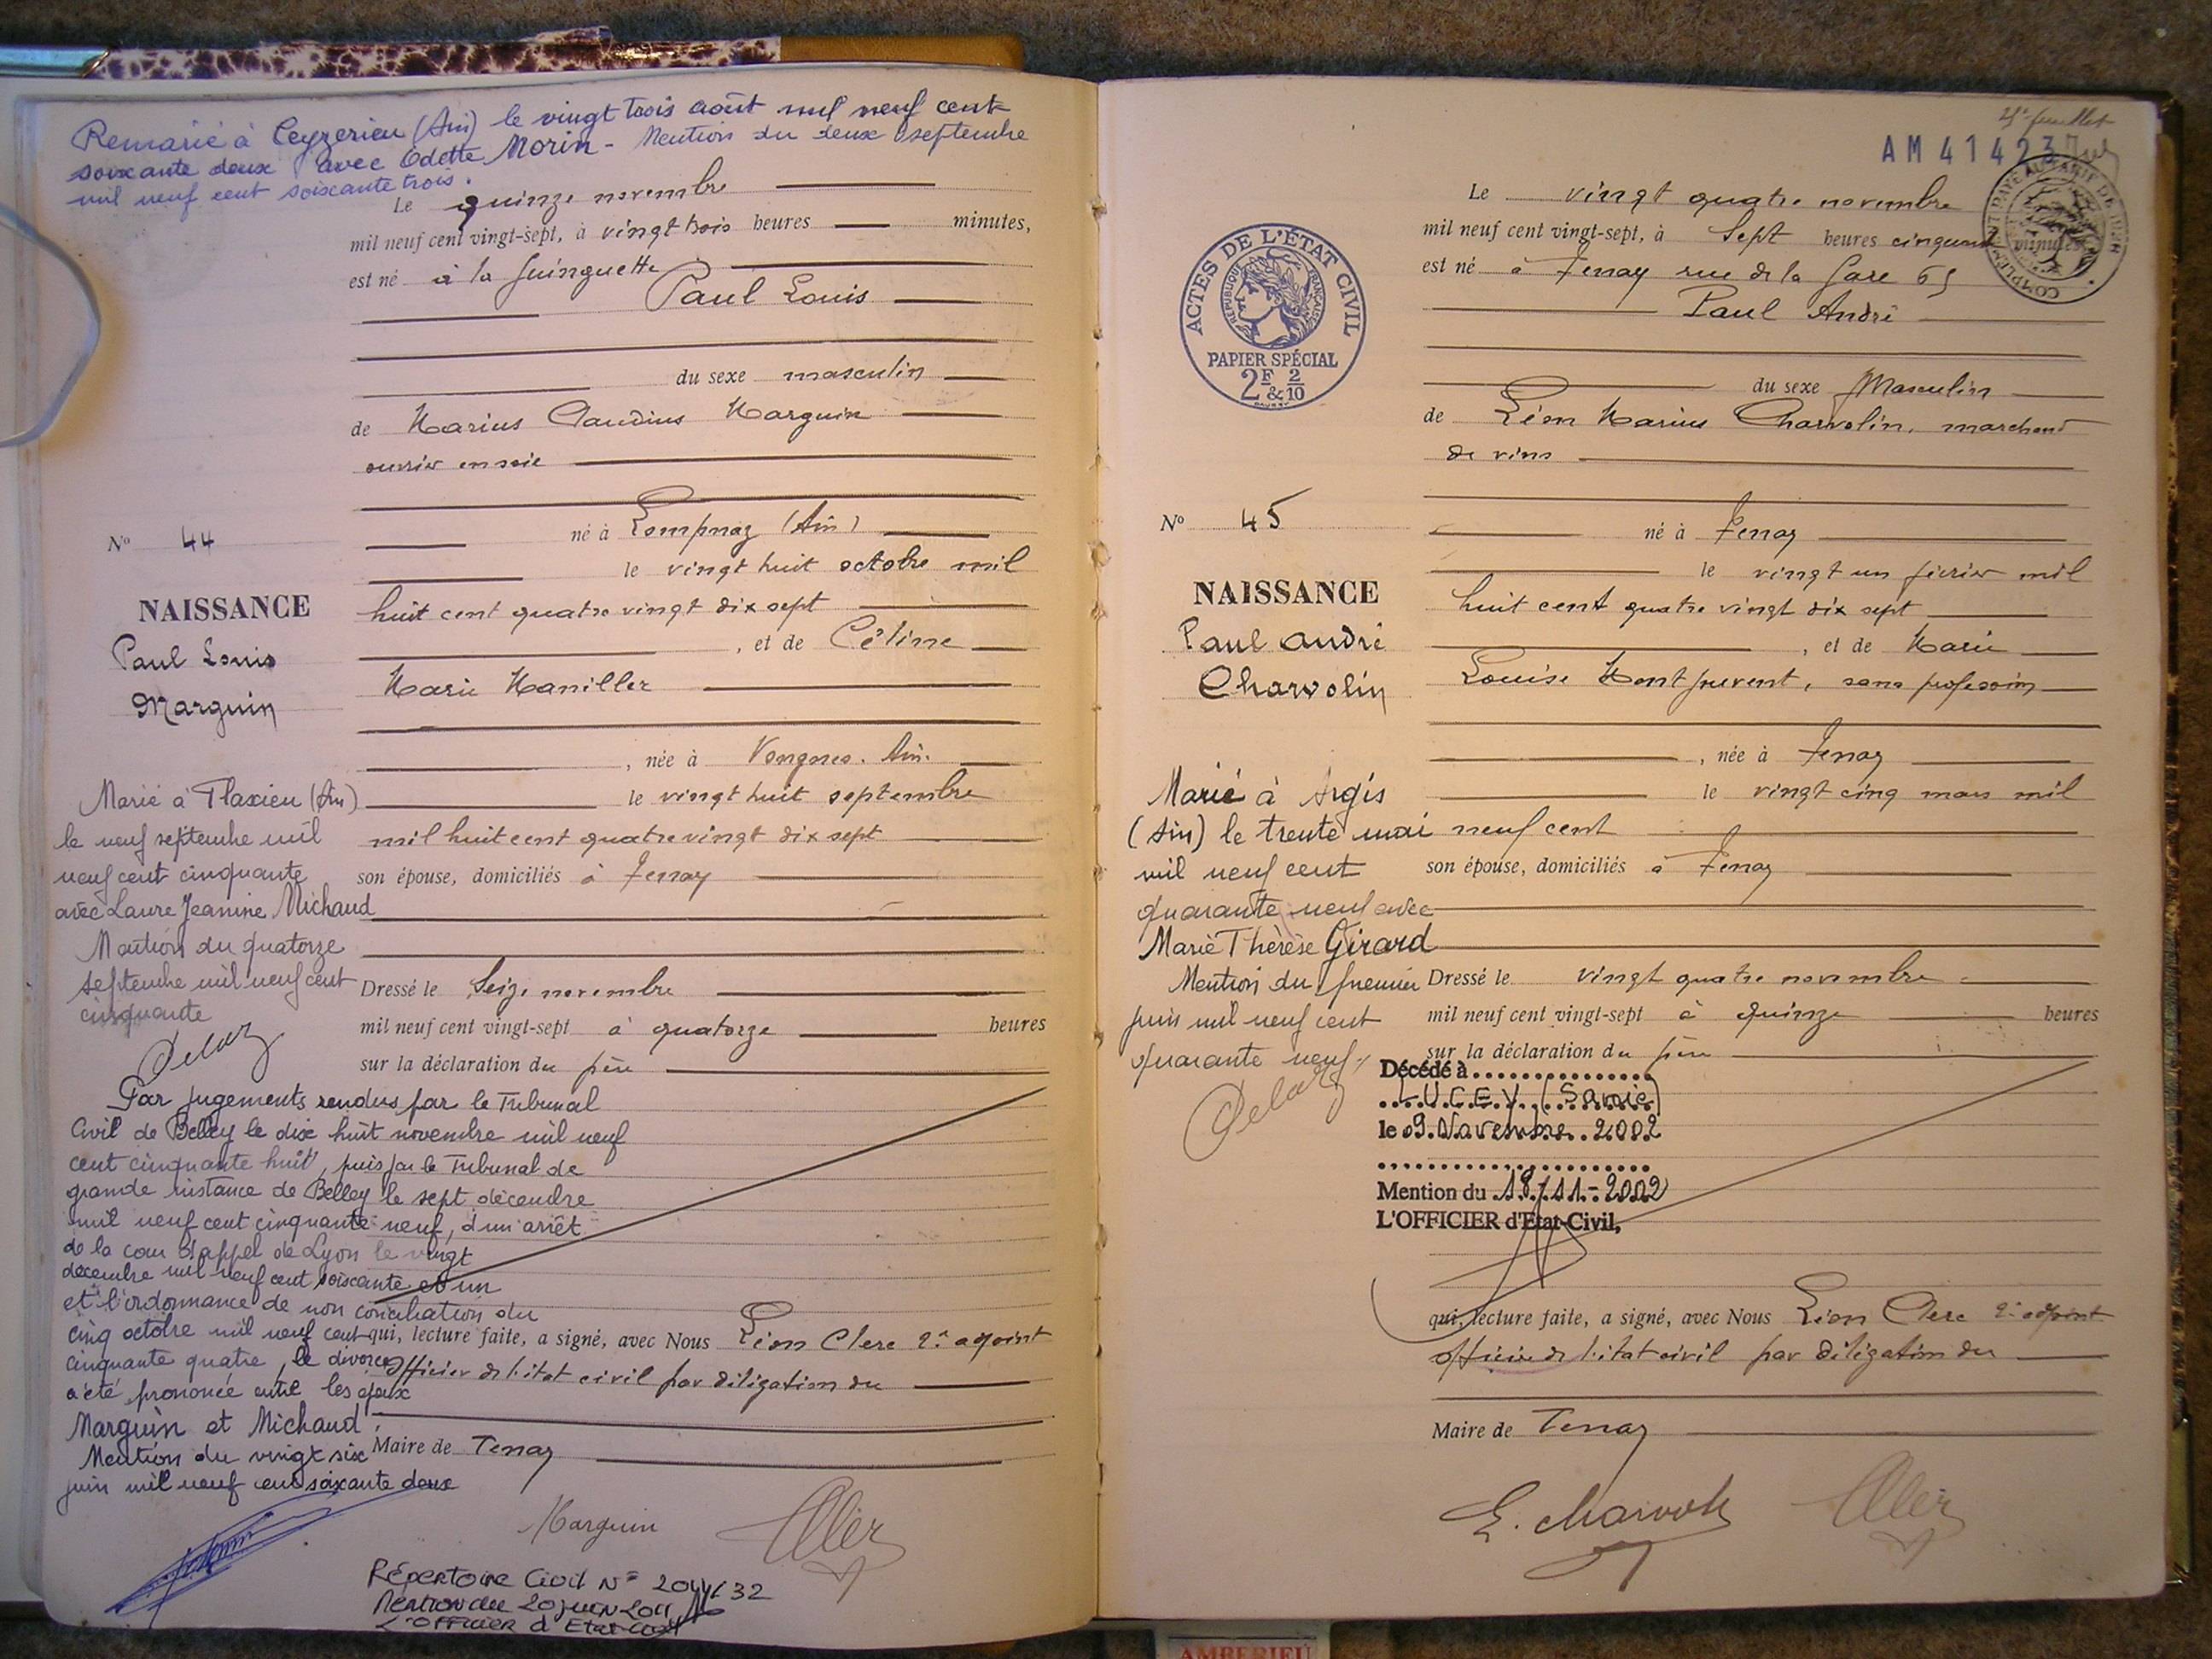 Remarié à Ceyzerieu (Ain) le vingt trois août mil neuf cent
soixante deux avec Odette Morin - Mention du deux septembre
mil neuf cent soixante trois.
Le quinze novembre
mil neuf cent vingt-sept, à vingt trois heures minutes,
est né à la Guinguette
Paul Louis
du sexe masculin
de Marius Claudius Marguin
ouvrier en soie
né à Lompnaz (Ain)
le vingt huit octobre mil
huit cent quatre vingt dix sept
, et de Céline
Marie Maniller
, née à Vongnes. Ain.
le vingt huit septembre
mil huit cent quatre vingt dix sept
son épouse, domiciliés à Tenay
Dressé le Seize novembre
mil neuf cent vingt-sept à quatorze heures
sur la déclaration du père
qui, lecture faite, a signé, avec Nous Léon Clerc 2e adjoint
officier de l'état civil par délégation du
Maire de Tenay
Marguin
N° 44
NAISSANCE
Paul Louis
Marguin
Marié à Flaxieu (Ain)
le neuf septembre mil
neuf cent cinquante
avec Laure Jeanine Michaud
Mention du quatorze
septembre mil neuf cent
cinquante
Par jugements rendus par le Tribunal
Civil de Belley le dix huit novembre mil neuf
cent cinquante huit, puis par le Tribunal de
grande instance de Belley le sept décembre
mil neuf cent cinquante neuf, d'un arrêt
de la cour d'appel de Lyon le vingt
décembre mil neuf cent soixante et un
et l'ordonnance de non conciliation du
cinq octobre mil neuf cent
cinquante quatre, le divorce
a été prononcé entre les époux
Marguin et Michaud
Mention du vingt six
juin mil neuf cent soixante deux
Répertoire Civil N°
Mention du 20 juin 2011
L'Officier d'Etat-Civil
AM 41423
COMPLÉMENT
ACTES DE L'ÉTAT CIVIL
RÉPUBLIQUE FRANÇAISE
PAPIER SPÉCIAL
2F & 2/10
Le vingt quatre novembre
mil neuf cent vingt-sept, à Sept heures cinquante minutes
est né à Tenay rue de la Gare 65
Paul André
du sexe Masculin
de Léon Marius Charvolin, marchand
de vins
né à Tenay
le vingt un février mil
huit cent quatre vingt dix sept
, et de Marie
Louise Montfrevent, sans profession
, née à Tenay
le vingt cinq mars mil
neuf cent
son épouse, domiciliés à Tenay
Dressé le vingt quatre novembre
mil neuf cent vingt-sept à quinze heures
sur la déclaration du père
qui, lecture faite, a signé, avec Nous Léon Clerc 2e adjoint
officier de l'état civil par délégation du
Maire de Tenay
N° 45
NAISSANCE
Paul André
Charvolin
Marié à Argis
(Ain) le trente mai
mil neuf cent
quarante neuf avec
Marie Thérèse Girard
Mention du premier
juin mil neuf cent
quarante neuf
Décédé à
LUCEY (Savoie)
le 09 Novembre 2002
Mention du 18/11-2002
L'OFFICIER d'Etat-Civil,
AMBERIEU